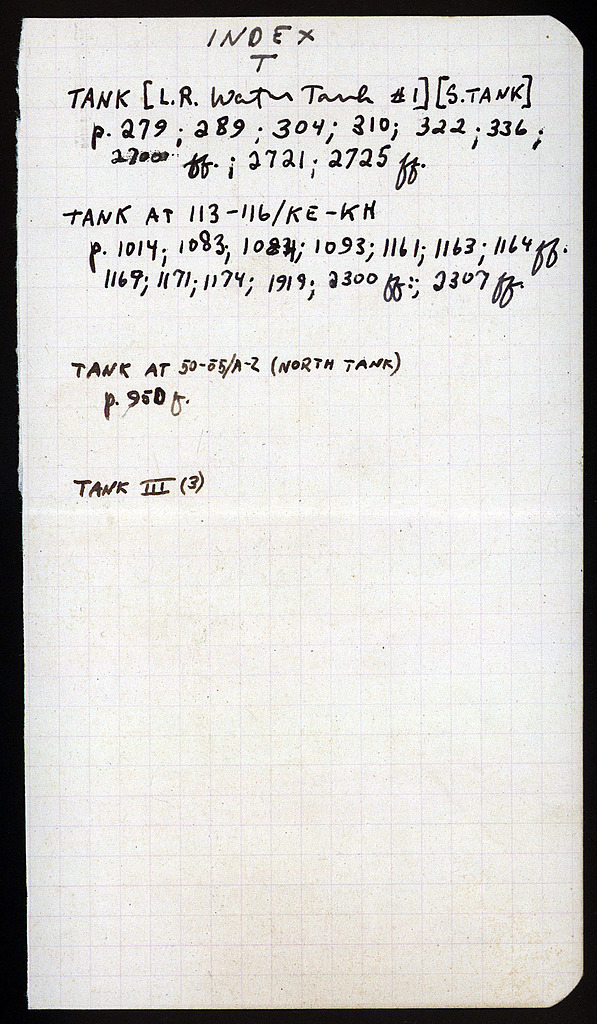 INDEX
T
TANK [L.R. Water Tank #1] [S.TANK]
p. 279; 289; 304; 310; 322; 336;
2700 ff.; 2721; 2725 ff.
TANK AT 113-116/KE-KH
p. 1014; 1083; 1084; 1093; 1161; 1163; 1164 ff.
1169; 1171; 1174; 1919; 2300 ff.; 2307 ff.
TANK AT 50-55/A-Z (NORTH TANK)
p. 950 f.
TANK III (3)